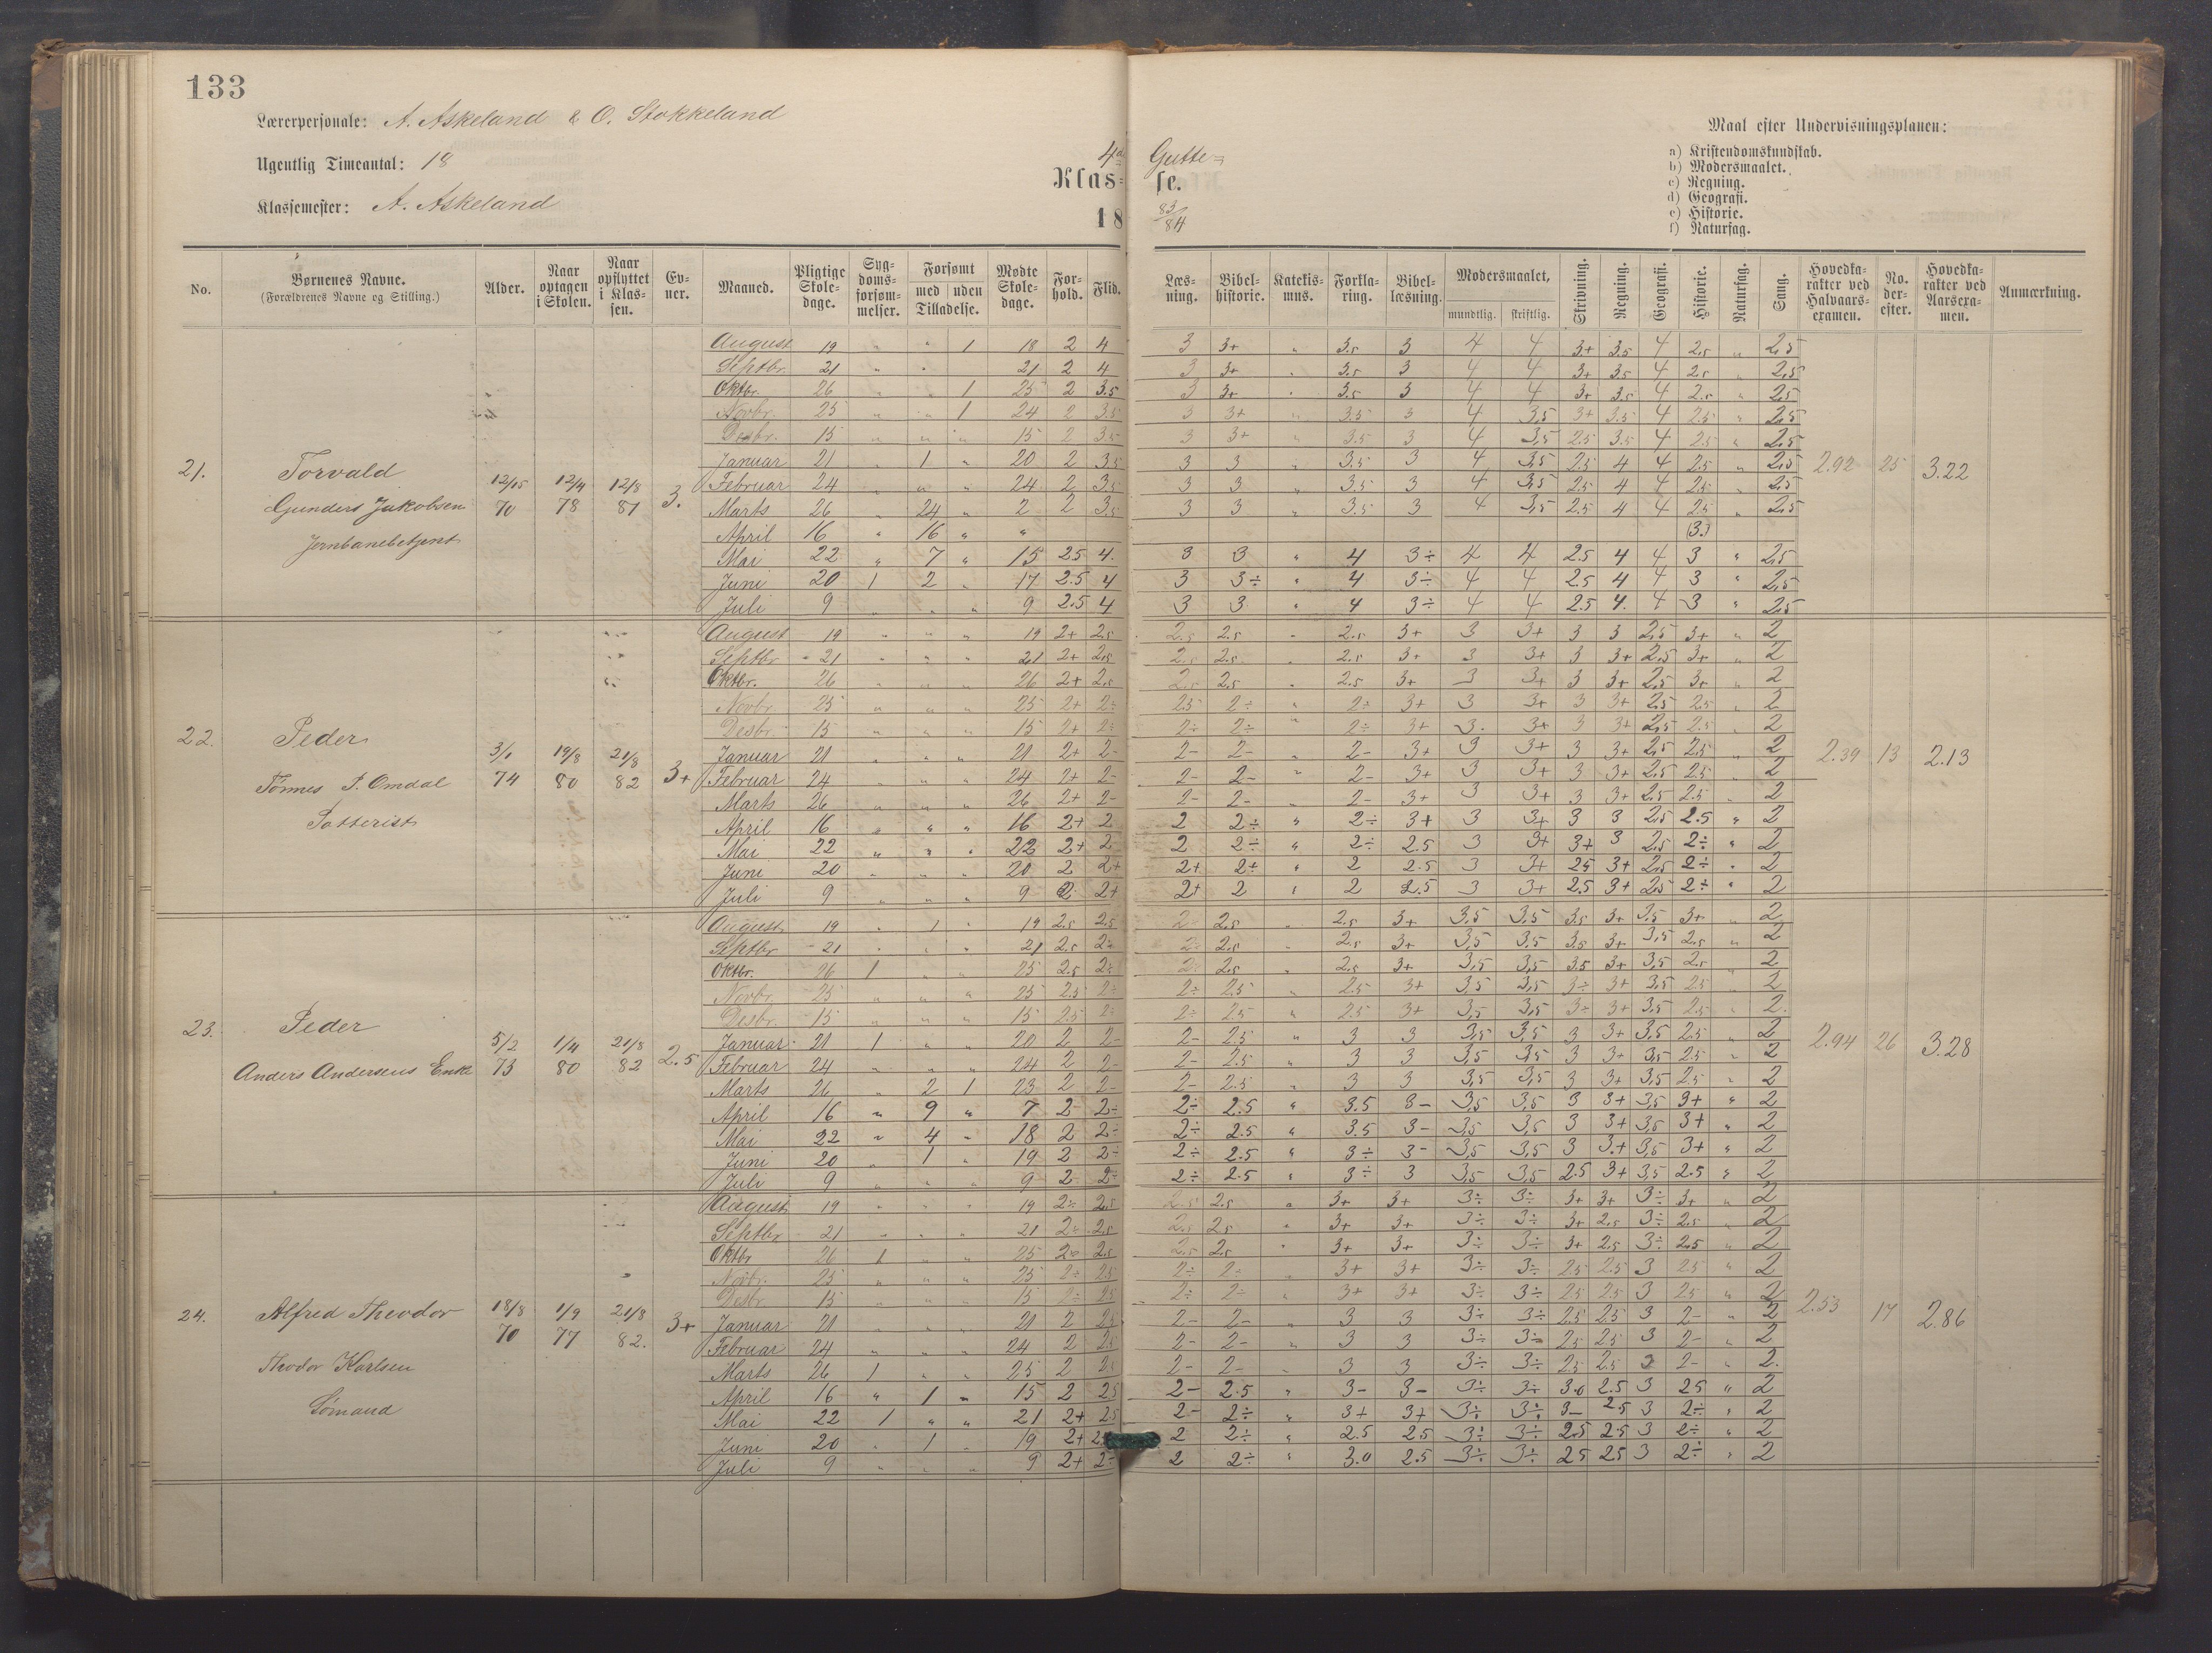 133
Lærerpersonale: A. Askeland & O. Stokkeland
Ugentlig Timeantal: 18
Klassemester: A. Askeland
4de Gutte=
Klas= se.
18 83/84
Maal efter Undervisningsplanen:
a) Kristendomskundskab.
b) Modersmaalet.
c) Regning.
d) Geografi.
e) Historie.
f) Naturfag.
No. Børnenes Navne. (Forældrenes Navne og Stilling.) Alder. Naar optagen i Skolen. Naar opflyttet i Klas=sen. Ev=ner. Maaned. Pligtige Skole=dage. Syg=doms=forsøm=melser. Forsømt med uden Tilladelse. Mødte Skole=dage. For=hold. Flid. Læs=ning. Bibel=historie. Katekis=mus. Forkla=ring. Bibel=læsning. Modersmaalet, mundtlig. skriftlig. Skrivning. Regning. Geografi. Historie. Naturfag. Sang. Hovedka=rakter ved Halvaars=examen. No. der=efter. Hovedka=rakter ved Aarsexa=men. Anmærkning.
August 19 " " 1 18 2 4 3 3+ " 3.5 3 4 4 3+ 3.5 4 2.5 " 2,5
Septbr. 21 " " 21 2 4 3 3+ " 3.5 3 4 4 3+ 3.5 4 2.5 " 2,5
Oktbr. 26 " " 1 25 2 3.5 3 3+ " 3.5 3 4 4 3+ 3.5 4 2.5 " 2,5
Novbr. 25 " " 1 24 2 3.5 3 3+ " 3.5 3 4 3,5 3+ 3.5 4 2.5 " 2,5
Desbr. 15 " " " 15 2 3.5 3 3+ " 3.5 3 4 3,5 2.5 3.5 4 2.5 " 2,5
Januar 21 " 1 " 20 2 3.5 3 3 " 3.5 3 4 3,5 2.5 4 4 2.5 " 2,5
Februar 24 " " " 24 2 3.5 3 3 " 3.5 3 4 3,5 2.5 4 4 2.5 " 2,5
Marts 26 " 24 " 2 2 3.5 3 3 " 3.5 3 4 3,5 2.5 4 4 2.5 " 2,5
April 16 " 16 " " (3.)
Mai 22 " 7 " 15 2.5 4. 3 3 " 4 3÷ 4 4 2.5 4 4 3 " 2,5
Juni 20 1 2 " 17 2.5 4 3 3÷ " 4 3÷ 4 4 2.5 4 4 3 " 2,5
Juli 9 " " " 9 2.5 4 3 3 " 4 3÷ 4 4 2.5 4. 4 3 " 2,5
21. Torvald
Gunders Jakobsen
Jernbanebetjent
12/15 70 12/4 78 12/8 81 3. 2.92 25 3.22
August 19 " " " 19 2+ 2.5 2.5 2.5 " 2.5 3+ 3 3+ 3 3 2,5 3+ " 2
Septbr 21 " " " 21 2+ 2.5 2.5 2.5 " 2.5 3+ 3 3+ 3 3+ 2,5 3+ " 2
Oktbr. 26 " " " 26 2+ 2.5 2.5 2.5 " 2.5 3+ 3 3+ 3 3+ 2,5 3+ " 2
Novbr. 25 " " " 25 2+ 2÷ 2.5 2÷ " 2÷ 3+ 3 3+ 3 3+ 2,5 2.5 " 2
Desbr. 15 " " " 15 2+ 2÷ 2÷ 2÷ " 2÷ 3+ 3. 3+ 3 3+ 2,5 2.5 " 2
Januar 21 " " " 21 2+ 2- 2- 2- " 2- 3+ 3 3+ 3 3+ 2,5 2.5 " 2
Februar 24 " " " 24 2+ 2- 2- 2- " 2- 3+ 3 3+ 3 3+ 2,5 2.5 " 2
Marts 26 " " " 26 2+ 2- 2- 2- " 2- 3+ 3 3+ 3 3+ 2,5 2.5 " 2
April 16 " " " 16 2+ 2 2 2÷ " 2÷ 3+ 3 3+ 3 3 2,5 2.5 " 2
Mai 22 " " " 22 2+ 2 2 2÷ " 2÷ 2.5 3 3+ 3+ 3 2,5 2÷ " 2
Juni 20 " " " 20 2 2+ 2+ 2+ " 2 2.5 3 3+ 2.5 3+ 2,5 2÷ " 2
Juli 9 " " " 9 2 2+ 2+ 2 " 2 2.5 3 3+ 2.5 3+ 2,5 2÷ " 2
22. Peder
Tönnes T. Omdal
3/1 74 19/8 80 21/8 82 3+ 2.39 13 2.13
August 19 " 1 " 19 2.5 2.5 2- 2.5 " 2.5 3+ 3,5 3,5 3.5 3+ 3,5 3+ " 2
Septbr 21 " " " 21 2.5 2÷ 2÷ 2.5 " 2.5 3+ 3,5 3,5 3.5 3+ 3,5 2.5 " 2
Oktbr. 26 1 " " 25 2.5 2÷ 2÷ 2.5 " 2.5 3+ 3,5 3,5 3.5 3+ 3,5 2.5 " 2
Novbr. 25 " " " 25 2.5 2÷ 2÷ 2.5 " 2.5 3+ 3,5 3,5 3÷ 3+ 3,5 2.5 " 2
Desbr. 15 " " " 15 2.5 2÷ 2÷ 2.5 " 2.5 3+ 3,5 3,5 3÷ 3+ 3,5 2.5 " 2.
Januar 21 1 " " 20 2 2- 2- 2.5 " 3 3 3,5 3,5 3 3+ 3,5 2.5 " 2
Februar 24 " " " 24 2 2- 2- 2.5 " 3 3 3,5 3,5 3 3+ 3,5 2.5 " 2
Marts 26 " 2 1 23 2 2- 2- 2.5 " 3 3 3,5 3,5 3 3+ 3,5 2.5 " 2
April 16 " 9 " 7 2 2÷ 2÷ 2.5 " 3.5 3- 3,5 3,5 3 3+ 3,5 3+ " 2
Mai 22 " 4 " 18 2 2÷ 2÷ 2.5 " 3.5 3- 3,5 3,5 3 3+ 3,5 3+ " 2
Juni 20 " 1 " 19 2 2÷ 2÷ 2.5 " 3÷ 3- 3,5 3,5 3 3+ 3,5 3+ " 2
Juli 9 " " " 9 2 2÷ 2÷ 2.5 " 3÷ 3 3,5 3,5 2.5 3+ 3,5 2.5 " 2
23. Peder
Anders Andersens Enke
5/2 73 1/4 80 21/8 82 2.5 2.94 26 3.28
August 19 " " " 19 2÷ 2.5 2.5 2.5 " 3+ 3+ 3÷ 3÷ 3+ 3+ 3÷ 3+ " 2
Septbr 21 " " " 21 2÷ 2.5 2.5 2.5 " 3+ 3+ 3÷ 3÷ 3+ 2.5 3÷ 2.5 " 2
Oktbr 26 1 " " 25 2÷ 2.5 2.5 2.5 " 3+ 3+ 3÷ 3÷ 3+ 2.5 3÷ 2.5 " 2
Novbr. 25 " " " 25 2÷ 2.5 2÷ 2÷ " 3+ 3+ 3÷ 3÷ 2.5 2.5 3 2.5 " 2
Desbr. 15 " " " 15 2÷ 2.5 2÷ 2÷ " 3+ 3+ 3÷ 3÷ 2.5 2.5 3 2.5 " 2
Januar 21 " " " 21 2 2.5 2- 2- " 3 3 3÷ 3÷ 2.5 2.5 3 2- " 2
Februar 24 " " " 24 2 2.5 2- 2- " 3 3 3÷ 3÷ 2.5 2.5 3 2- " 2
Marts 26 1 " " 25 2 2.5 2- 2- " 3 3 3÷ 3÷ 2.5 2.5 3 2- " 2.
April 16 " 1 " 15 2 2.5 2- 2.5 " 3- 3- 3÷ 3÷ 3.0 2.5 3 2.5 " 2
Mai 22 1 " " 21 2+ 2.5 2- 2÷ " 3+ 3+ 3÷ 3÷ 3- 2.5 3 2÷ " 2
Juni 20 " 1 " 19 2+ 2 2÷ " 2.5 2.5 3÷ 3÷ 2.5 2.5 3 2÷ " 2
Juli 9 " " " 9 2+ 2÷ 2 2÷ " 3.0 2.5 3÷ 3÷ 2.5 2.5 3 2÷ " 2
24. Alfred Theodor
Theodor Karlsen
Sömand
18/8 70 1/9 77 21/8 82. 3+ 2.53 17 2.86